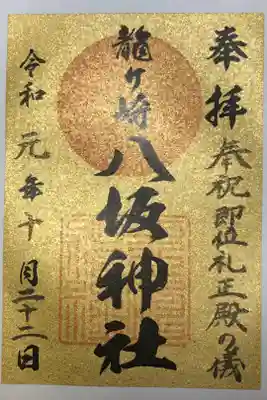 奉拝
奉祝即位礼正殿の儀
龍ヶ崎
八坂神社
令和元年十月二十二日